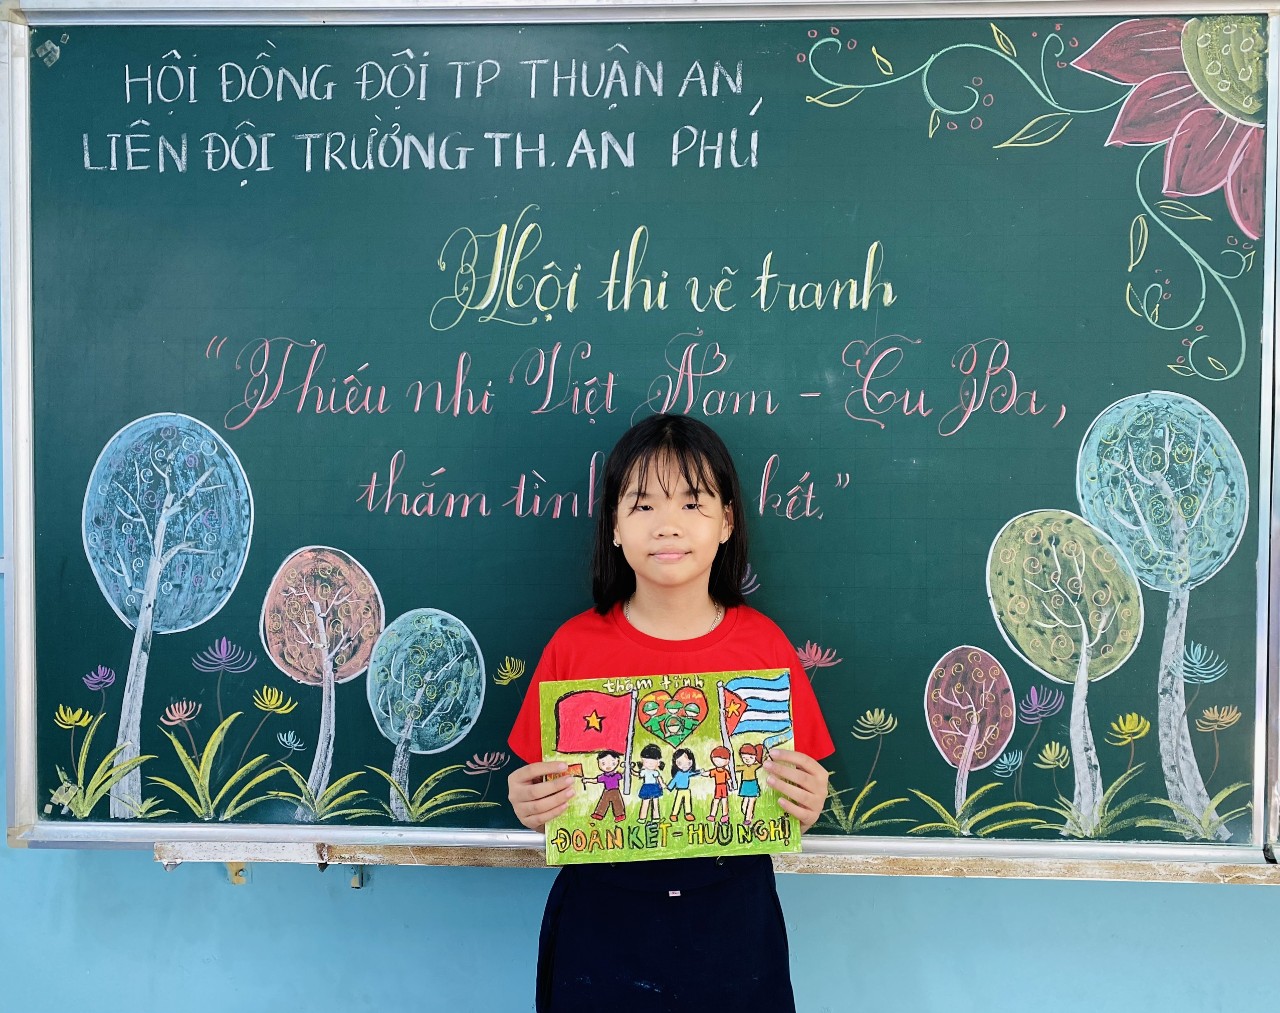 HỘI ĐỒNG ĐỘI TP THUẬN AN
LIÊN ĐỘI TRƯỜNG TH. AN PHÚ
Hội thi vẽ tranh
“Thiếu nhi Việt Nam - Cu Ba,
thắm tình kết.”
thắm tình
ĐOÀN KẾT - HỮU NGHỊ